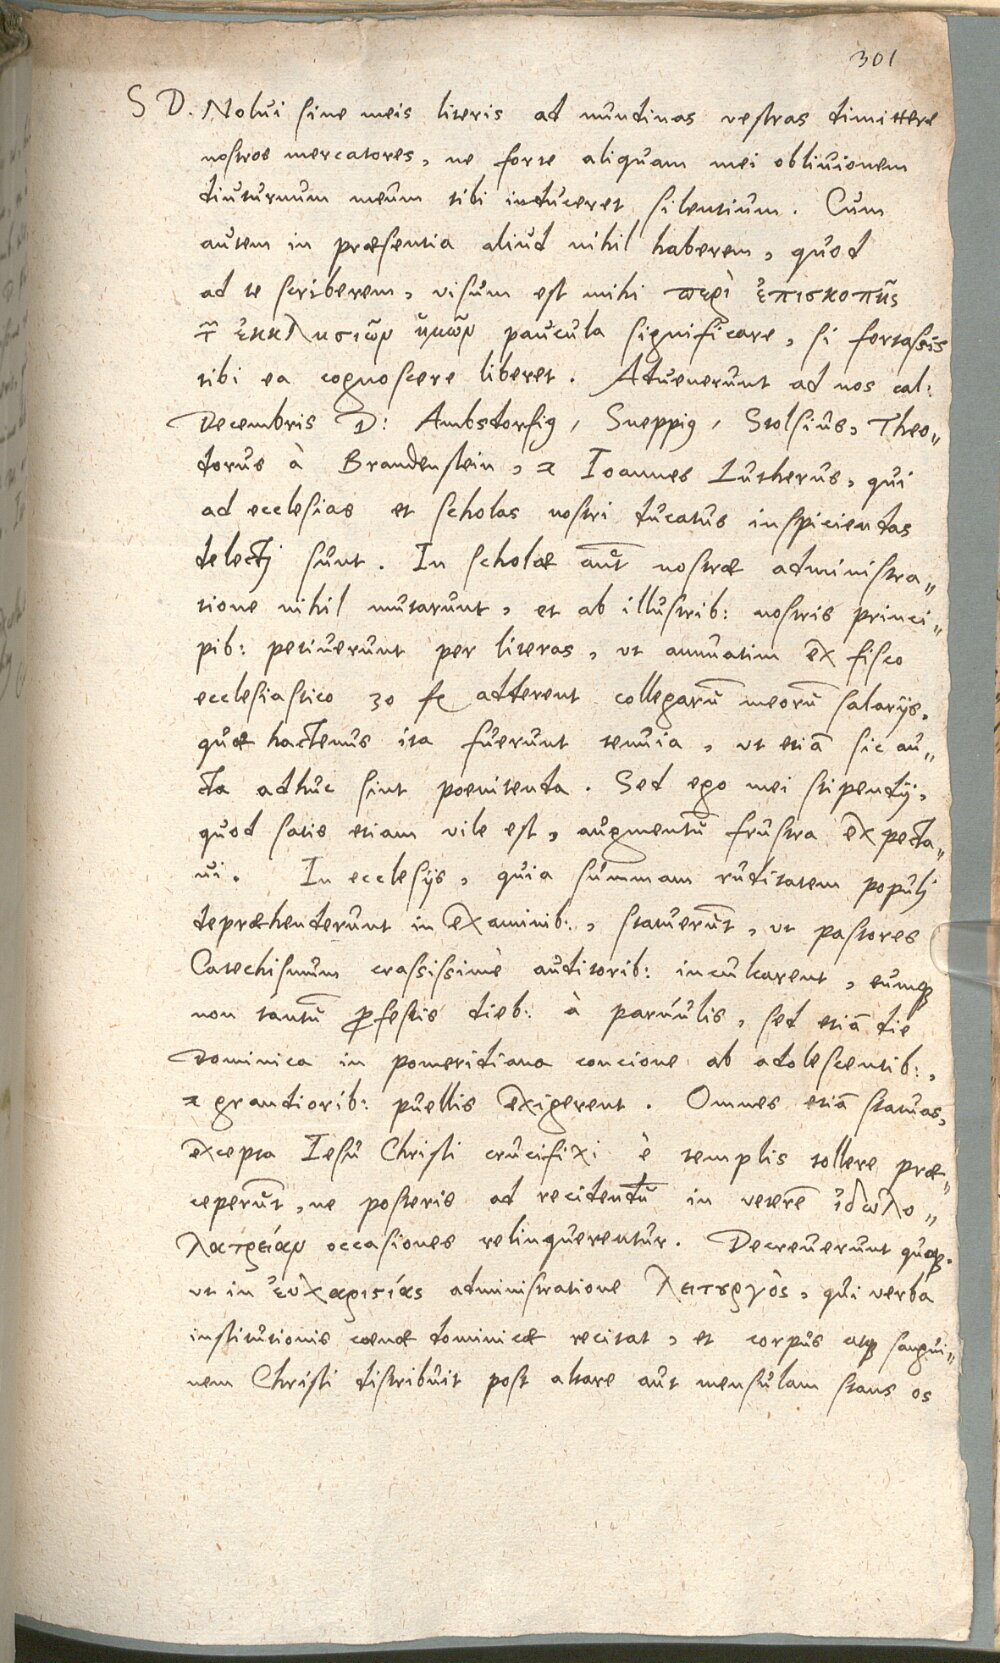 301
S D. Nolui sine meis literis ad nundinas vestras dimittere
nostros mercatores, ne forte aliquam mei obliuionem
diuturnum meum tibi induceret silentium. Cum
autem in præsentia aliud nihil haberem, quod
ad te scriberem, visum est mihi περὶ ἐπισκοπῆς
τ῀ ἐκκλησιῶν ἡμῶν paucula significare, si fortassis
tibi ea cognoscere liberet. Aduenerunt ad nos cal:
Decembris D: Ambsdorfig, Sneppig, Stolsius, Theo„
dorus à Brandenstein, & Ioannes Lutherus, qui
ad ecclesias et scholas nostri ducatus inspiciendas
delectj sunt. In scholæ aut̄ nostræ administra„
tione nihil mutarunt, et ab illustrib: nostris princi„
pib: petiuerunt per literas, vt annuatim ex fisco
ecclesiastico 30 fl adderent collegarū meorū salarijs,
quæ hactenus ita fuerunt tenuia, vt etiā sic au„
cta adhuc sint poenitenda. Sed ego mei stipendij,
quod satis etiam vile est, augmentū frustra expecta„
ui. In ecclesijs, quia summam ruditatem populj
depræhenderunt in examinib:, statuerūt, vt pastores
Catechismum crassissimè auditorib: inculcarent, eumq;
non tantū ꝓfestis dieb: à paruulis, sed etiā die
Dominica in pomeridiana concione ab adolescentib:,
& grandiorib: puellis exigerent. Omnes etiā statuas,
excepta Iesu Christi crucifixi è templis tollere præ„
ceperūt, ne posteris ad recidendū in veterē ἰδωλο„
λατρείαν occasiones relinquerentur. Decreuerunt quoq;.
vt in ἐυχαριστίας administratione λειτȣργὸς, qui verba
institutionis coenæ dominicæ recitat, et corpus atq; sangui„
nem Christi distribuit post altare aut mensulam stans os